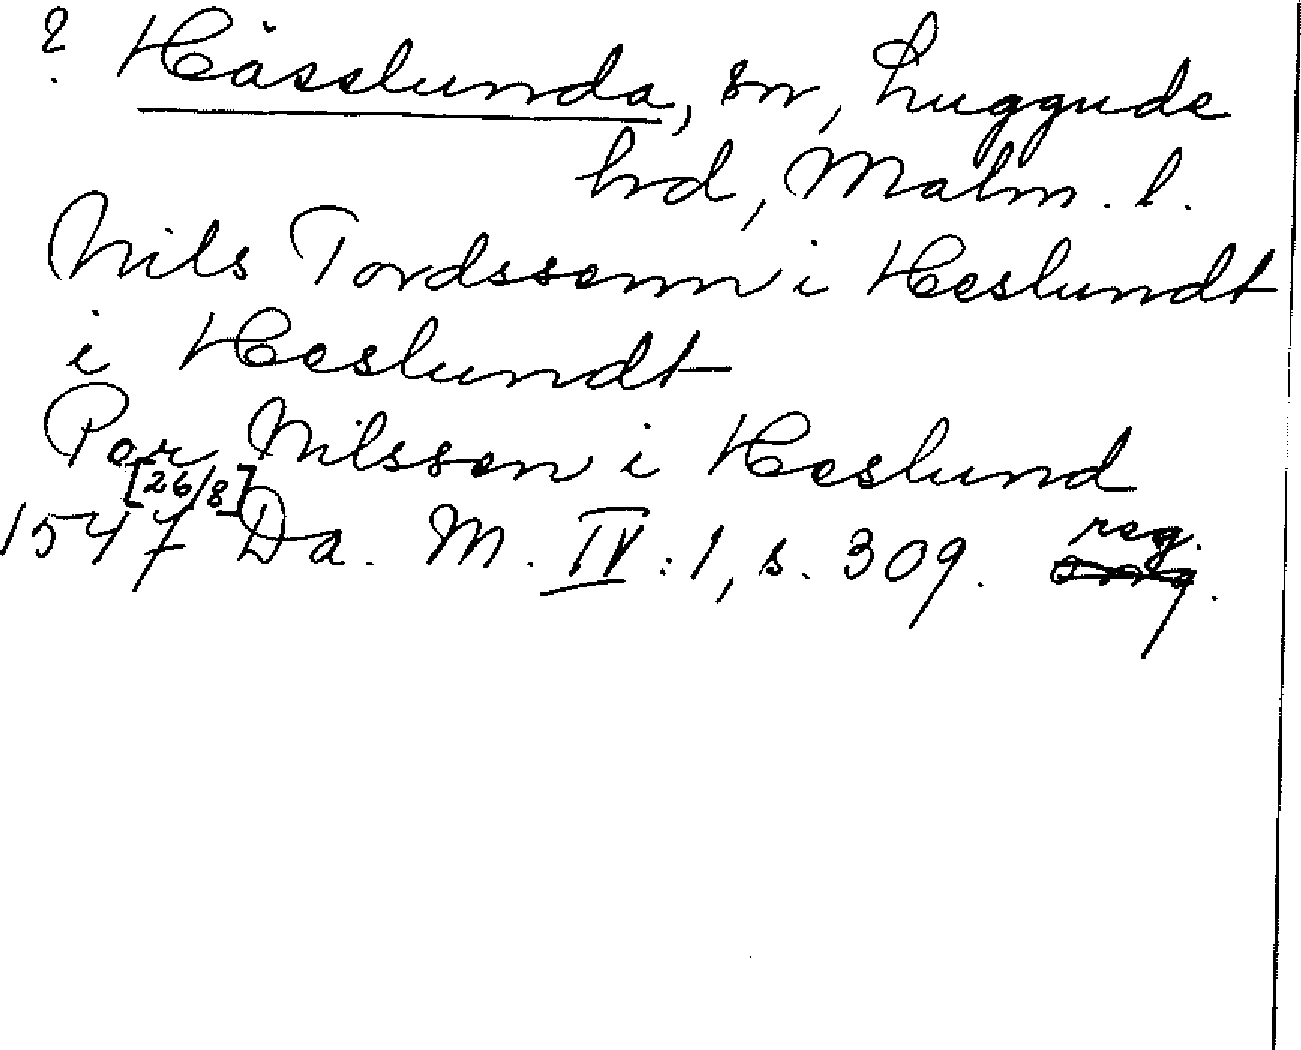 ? Hässlunda, sn, Luggude
hrd, Malm. l.
Nils Tordssenn i Heslundt
i Heslundt
Per Nilssen i Heslund
[26/8]
1547 Da. M. IV:1, s. 309. reg.